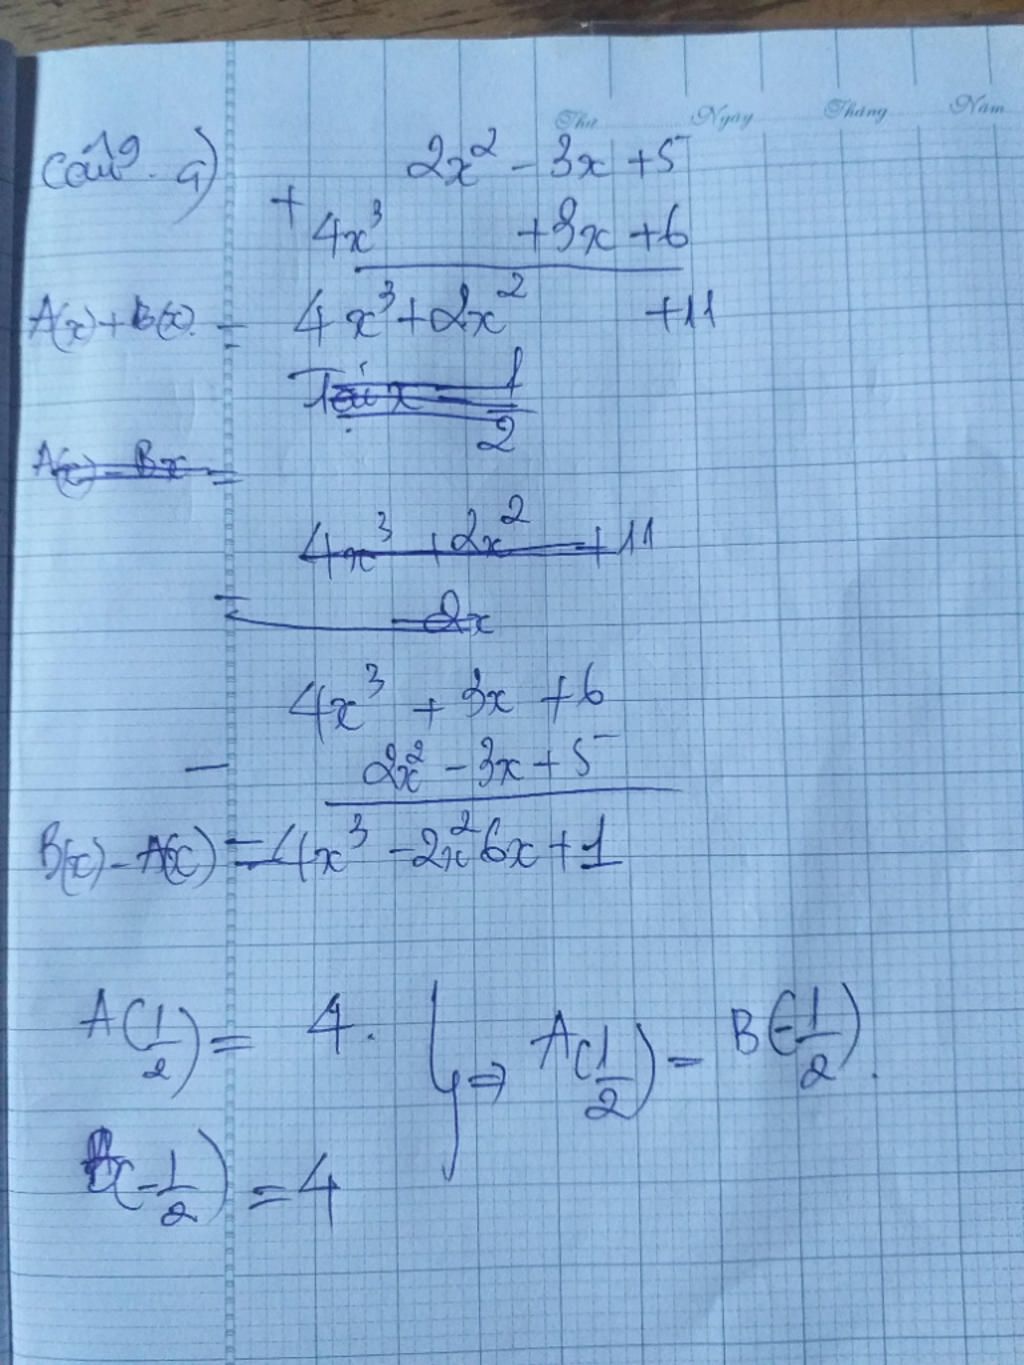 Thứ Ngày Tháng Năm
Câu 19. a) 2x² - 3x + 5
+ 4x³ + 3x + 6
A(x) + B(x) = 4x³ + 2x² + 11
Tại x = 1/2
A(x) - Bx =
4x³ + 2x² + 11
= - 2x
4x³ + 3x + 6
- 2x² - 3x + 5
B(x) - A(x) = 4x³ - 2x² 6x + 1
A(1/2) = 4. } ⇒ A(1/2) = B(-1/2).
B(-1/2) = 4